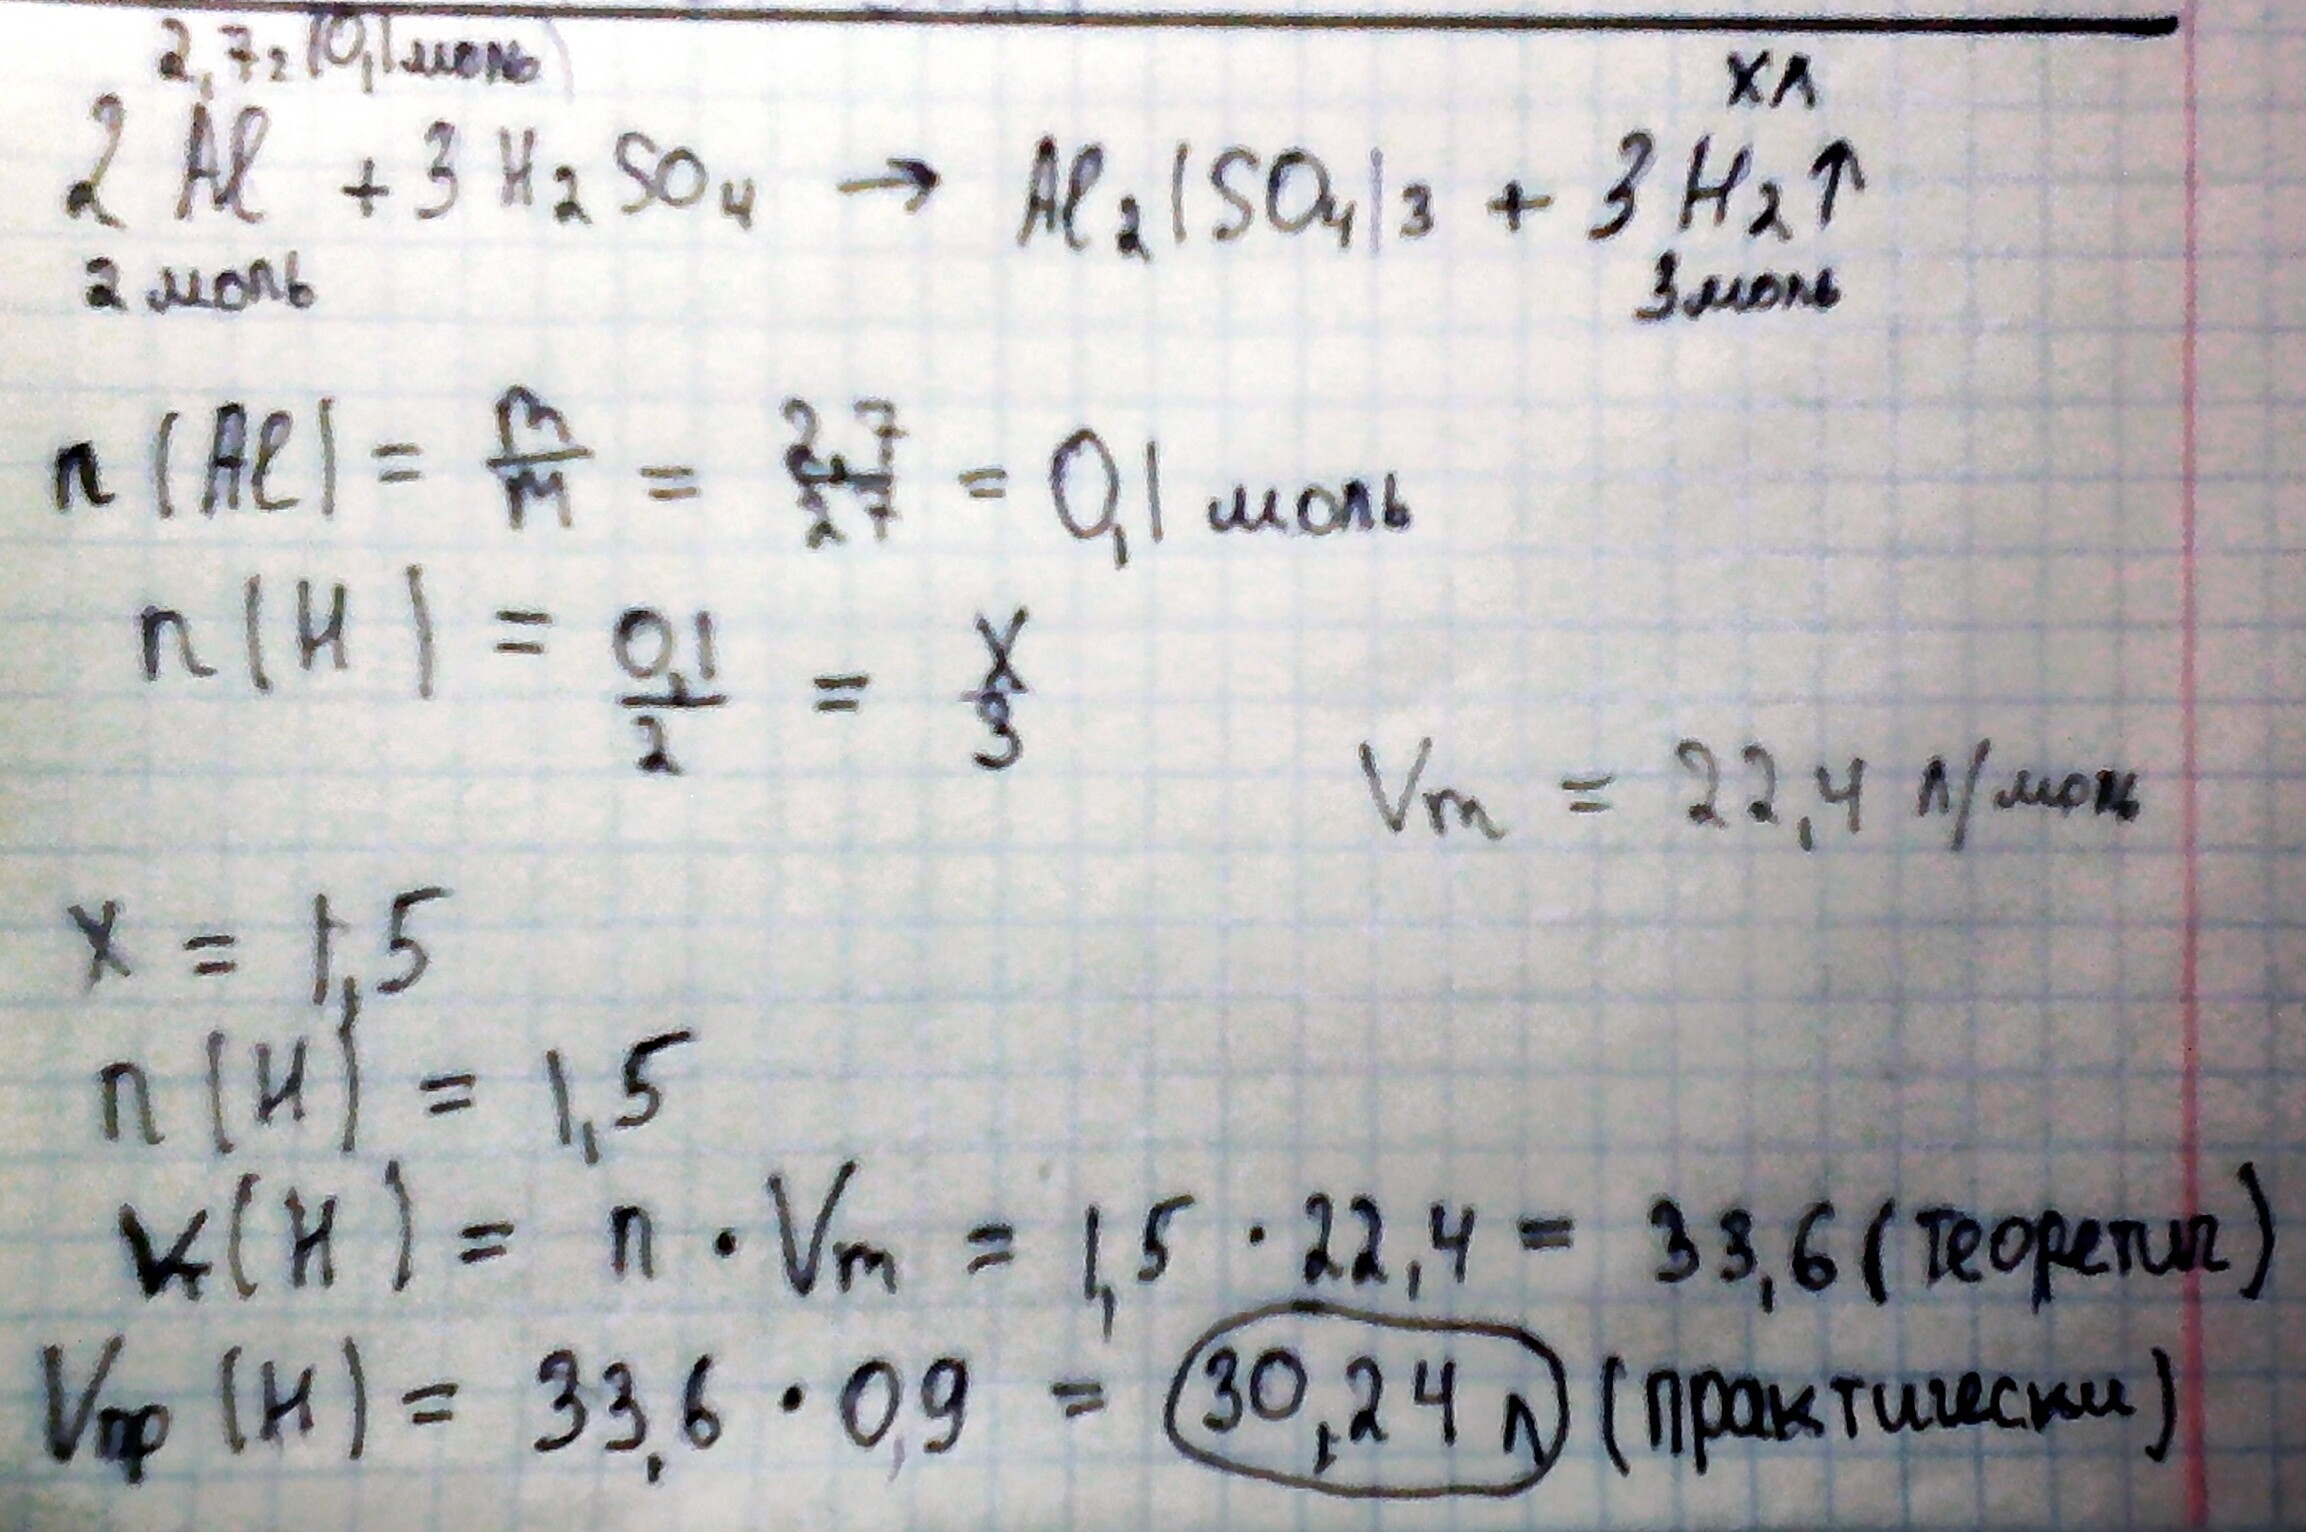 2,7г (0,1 моль)
xл
2 Al + 3 H₂SO₄ → Al₂(SO₄)₃ + 3 H₂↑
2 моль 3 моль
n(Al) = m/m = 2,7/27 = 0,1 моль
n(H) = 0,1/2 = x/3
Vm = 22,4 л/моль
x = 1,5
n(H) = 1,5
V(H) = n · Vm = 1,5 · 22,4 = 33,6 (теоретич)
Vпр (H) = 33,6 · 0,9 = 30,24 л (практически)